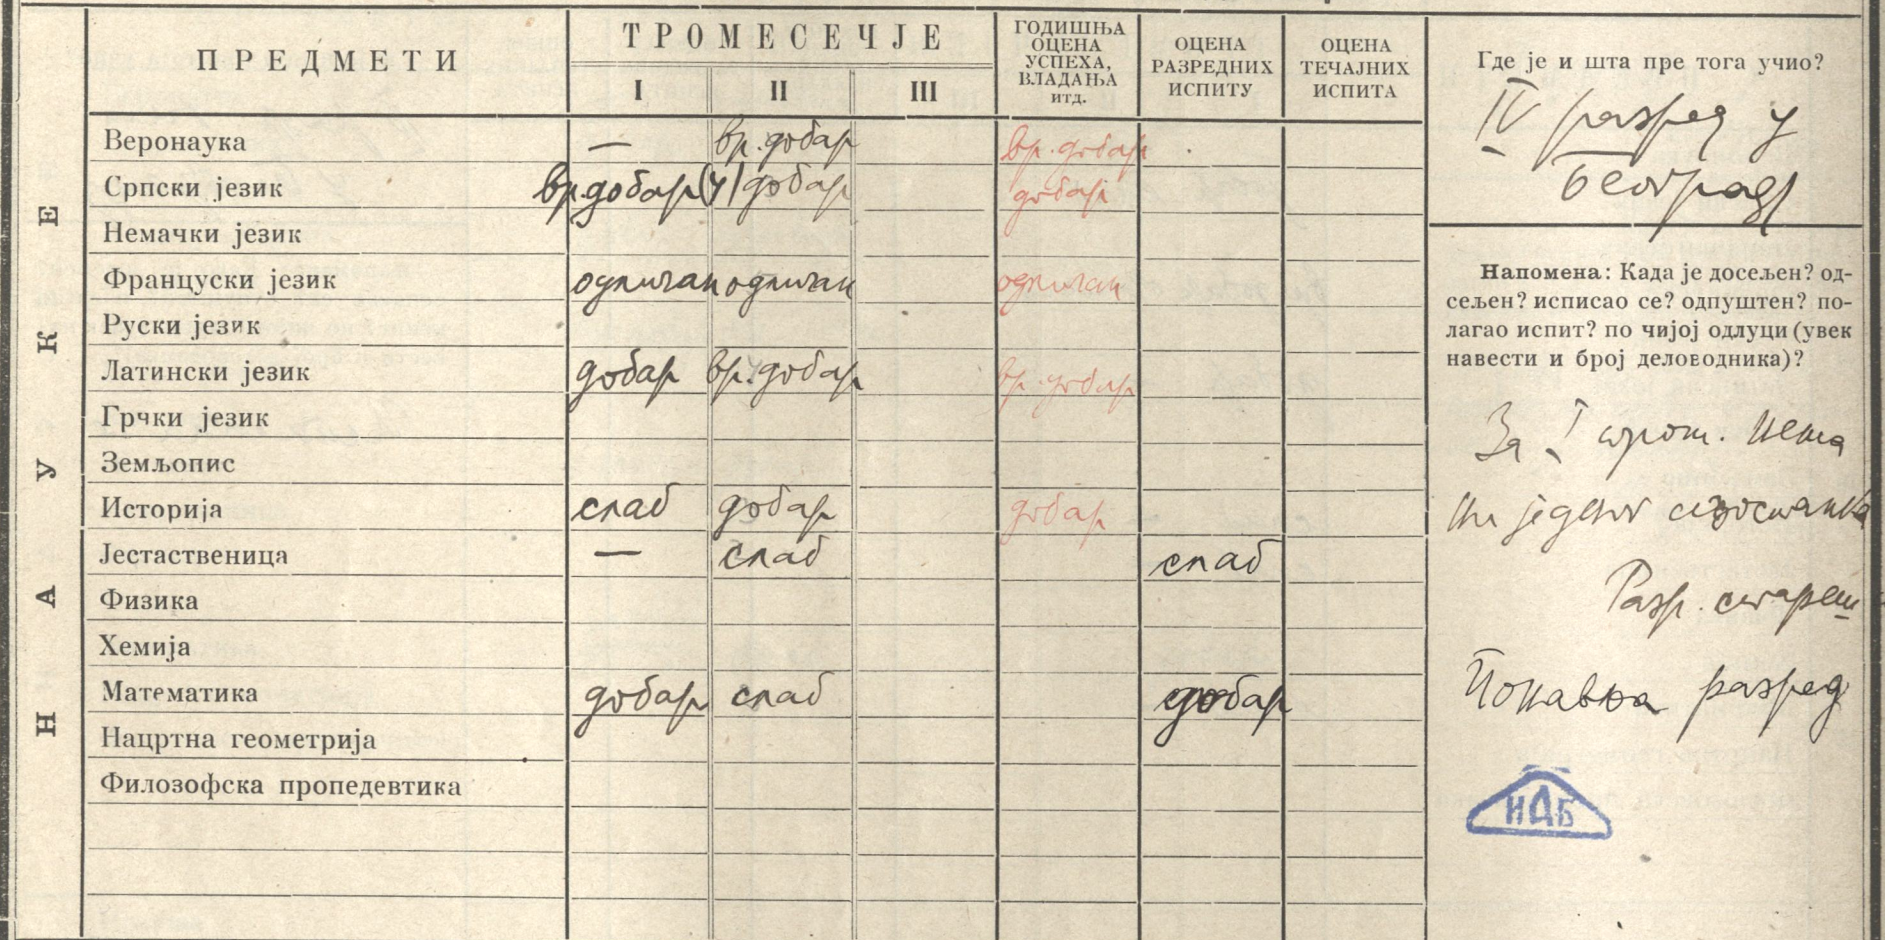 ПРЕДМЕТИ ТРОМЕСЕЧЈЕ ГОДИШЊА ОЦЕНА УСПЕХА, ВЛАДАЊА ИТД. ОЦЕНА РАЗРЕДНИХ ИСПИТУ ОЦЕНА ТЕЧАЈНИХ ИСПИТА
I II III
НАУКЕ
Веронаука — вр. добар вр. добар
Српски језик вр. добар (4) добар добар
Немачки језик
Француски језик одличан одличан одличан
Руски језик
Латински језик добар вр. добар вр. добар
Грчки језик
Земљопис
Историја слаб добар добар
Јестаственица — слаб слаб
Физика
Хемија
Математика добар слаб добар
Нацртна геометрија
Филозофска пропедевтика
Где је и шта пре тога учио?
IV разред у
Београду
Напомена: Када је досељен? од-
сељен? исписао се? одпуштен? по-
лагао испит? по чијој одлуци (увек
навести и број деловодника)?
За I тром. нема
ни једног изостанка
Разр. стареш
Понавља разред
ИАБ